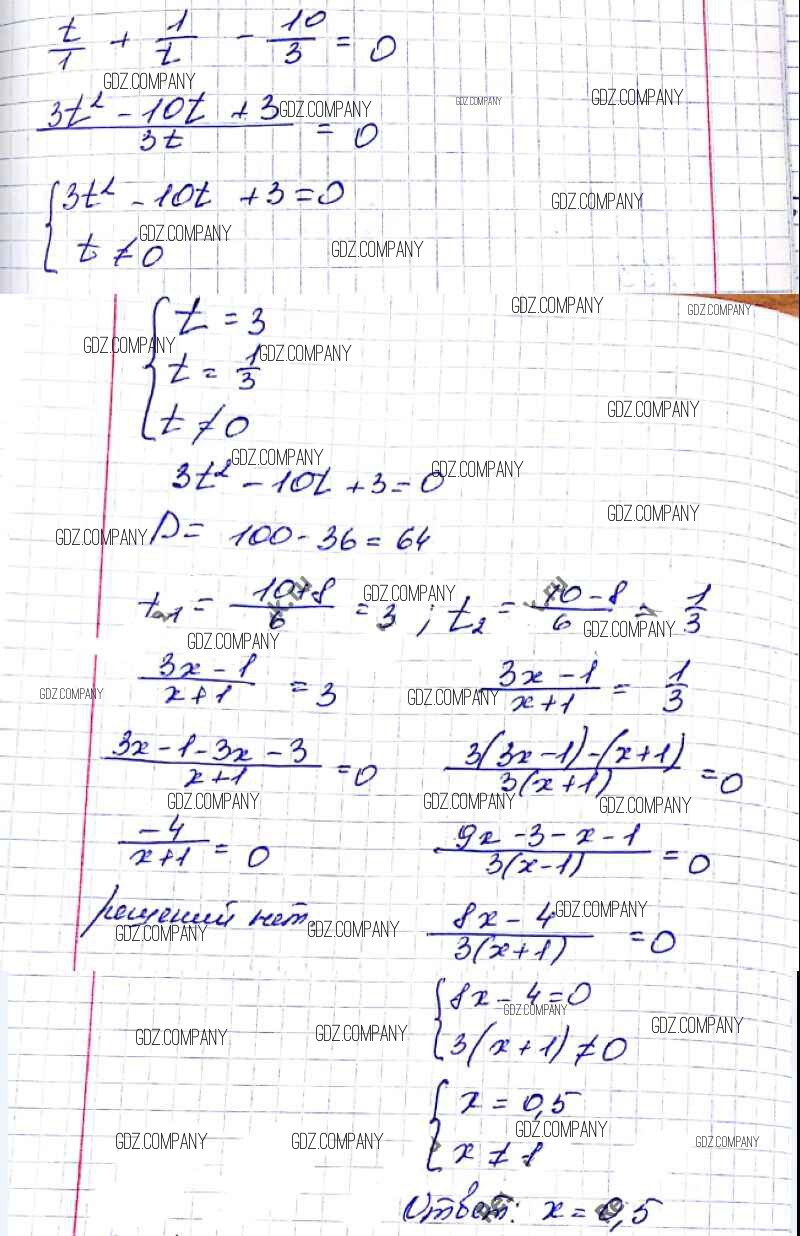 t/1 + 1/t - 10/3 = 0
GDZ.COMPANY
(3t² - 10t + 3)/3t = 0
GDZ.COMPANY GDZ.COMPANY GDZ.COMPANY
{ 3t² - 10t + 3 = 0
GDZ.COMPANY
t ≠ 0
GDZ.COMPANY GDZ.COMPANY
{ t = 3
GDZ.COMPANY GDZ.COMPANY
t = 1/3
GDZ.COMPANY GDZ.COMPANY
t ≠ 0
GDZ.COMPANY
3t² - 10t + 3 = 0
GDZ.COMPANY GDZ.COMPANY
D = 100 - 36 = 64
GDZ.COMPANY GDZ.COMPANY
t₁ = (10+8)/6 = 3 ; t₂ = (10-8)/6 = 1/3
GDZ.COMPANY GDZ.COMPANY
GDZ.COMPANY
(3x - 1)/(x+1) = 3 (3x - 1)/(x+1) = 1/3
GDZ.COMPANY GDZ.COMPANY
(3x - 1 - 3x - 3)/(x+1) = 0 (3(3x-1)-(x+1))/(3(x+1)) = 0
GDZ.COMPANY GDZ.COMPANY GDZ.COMPANY
-4/(x+1) = 0 (9x - 3 - x - 1)/(3(x-1)) = 0
решений нет. (8x - 4)/(3(x+1)) = 0
GDZ.COMPANY GDZ.COMPANY GDZ.COMPANY
{ 8x - 4 = 0
GDZ.COMPANY
3(x+1) ≠ 0
GDZ.COMPANY GDZ.COMPANY GDZ.COMPANY
{ x = 0,5
GDZ.COMPANY
x ≠ 1
GDZ.COMPANY GDZ.COMPANY GDZ.COMPANY
Ответ: x = 0,5